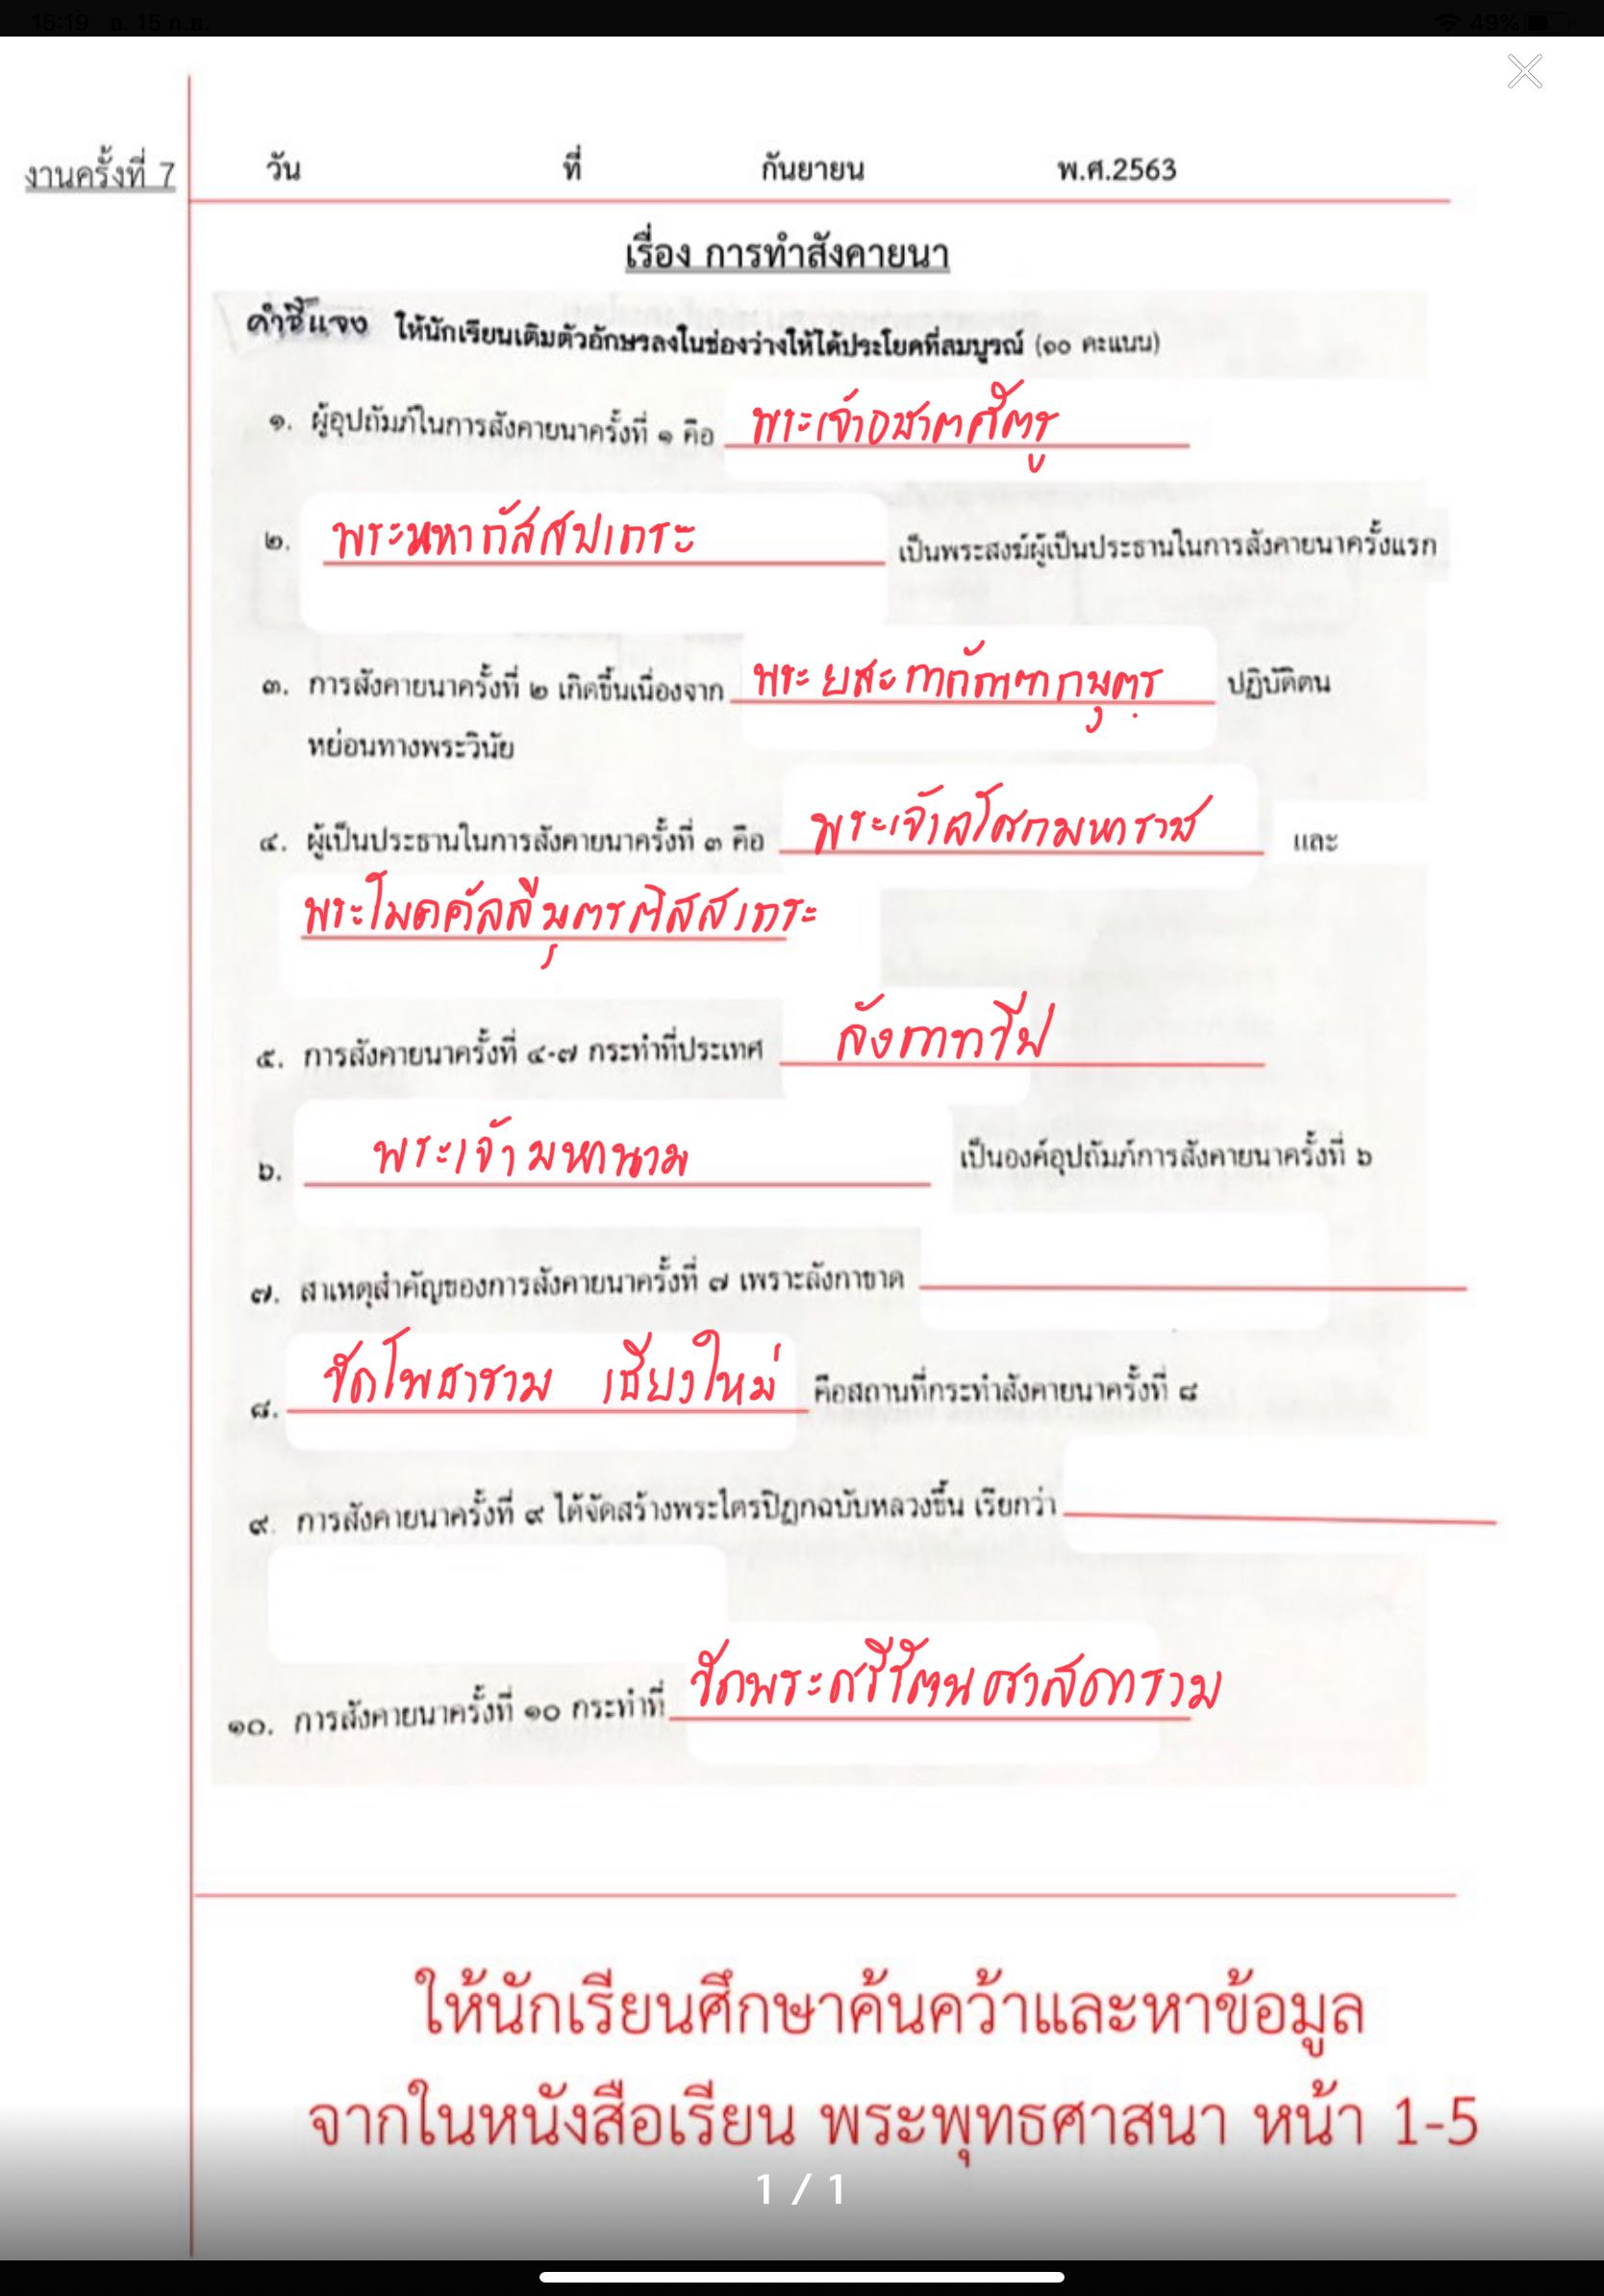 15:19 อ. 15 ก.ย. 49%
งานครั้งที่ 7 วัน ที่ กันยายน พ.ศ.2563
เรื่อง การทำสังคายนา
คำชี้แจง ให้นักเรียนเติมตัวอักษรลงในช่องว่างให้ได้ประโยคที่สมบูรณ์ (๑๐ คะแนน)
๑. ผู้อุปถัมภ์ในการสังคายนาครั้งที่ ๑ คือ พระเจ้าอชาตศัตรู
๒. พระมหากัสสปเถระ เป็นพระสงฆ์ผู้เป็นประธานในการสังคายนาครั้งแรก
๓. การสังคายนาครั้งที่ ๒ เกิดขึ้นเนื่องจาก พระยสะกากัณฑกบุตร ปฏิบัติตน
หย่อนทางพระวินัย
๔. ผู้เป็นประธานในการสังคายนาครั้งที่ ๓ คือ พระเจ้าอโศกมหาราช และ
พระโมคคัลลีบุตรติสสเถระ
๕. การสังคายนาครั้งที่ ๔-๗ กระทำที่ประเทศ ลังกาทวีป
๖. พระเจ้ามหานาม เป็นองค์อุปถัมภ์การสังคายนาครั้งที่ ๖
๗. สาเหตุสำคัญของการสังคายนาครั้งที่ ๗ เพราะลังกาขาด
๘. วัดโพธาราม เชียงใหม่ คือสถานที่กระทำสังคายนาครั้งที่ ๘
๙. การสังคายนาครั้งที่ ๙ ได้จัดสร้างพระไตรปิฎกฉบับหลวงขึ้น เรียกว่า
๑๐. การสังคายนาครั้งที่ ๑๐ กระทำที่ วัดพระศรีรัตนศาสดาราม
ให้นักเรียนศึกษาค้นคว้าและหาข้อมูล
จากในหนังสือเรียน พระพุทธศาสนา หน้า 1-5
1 / 1